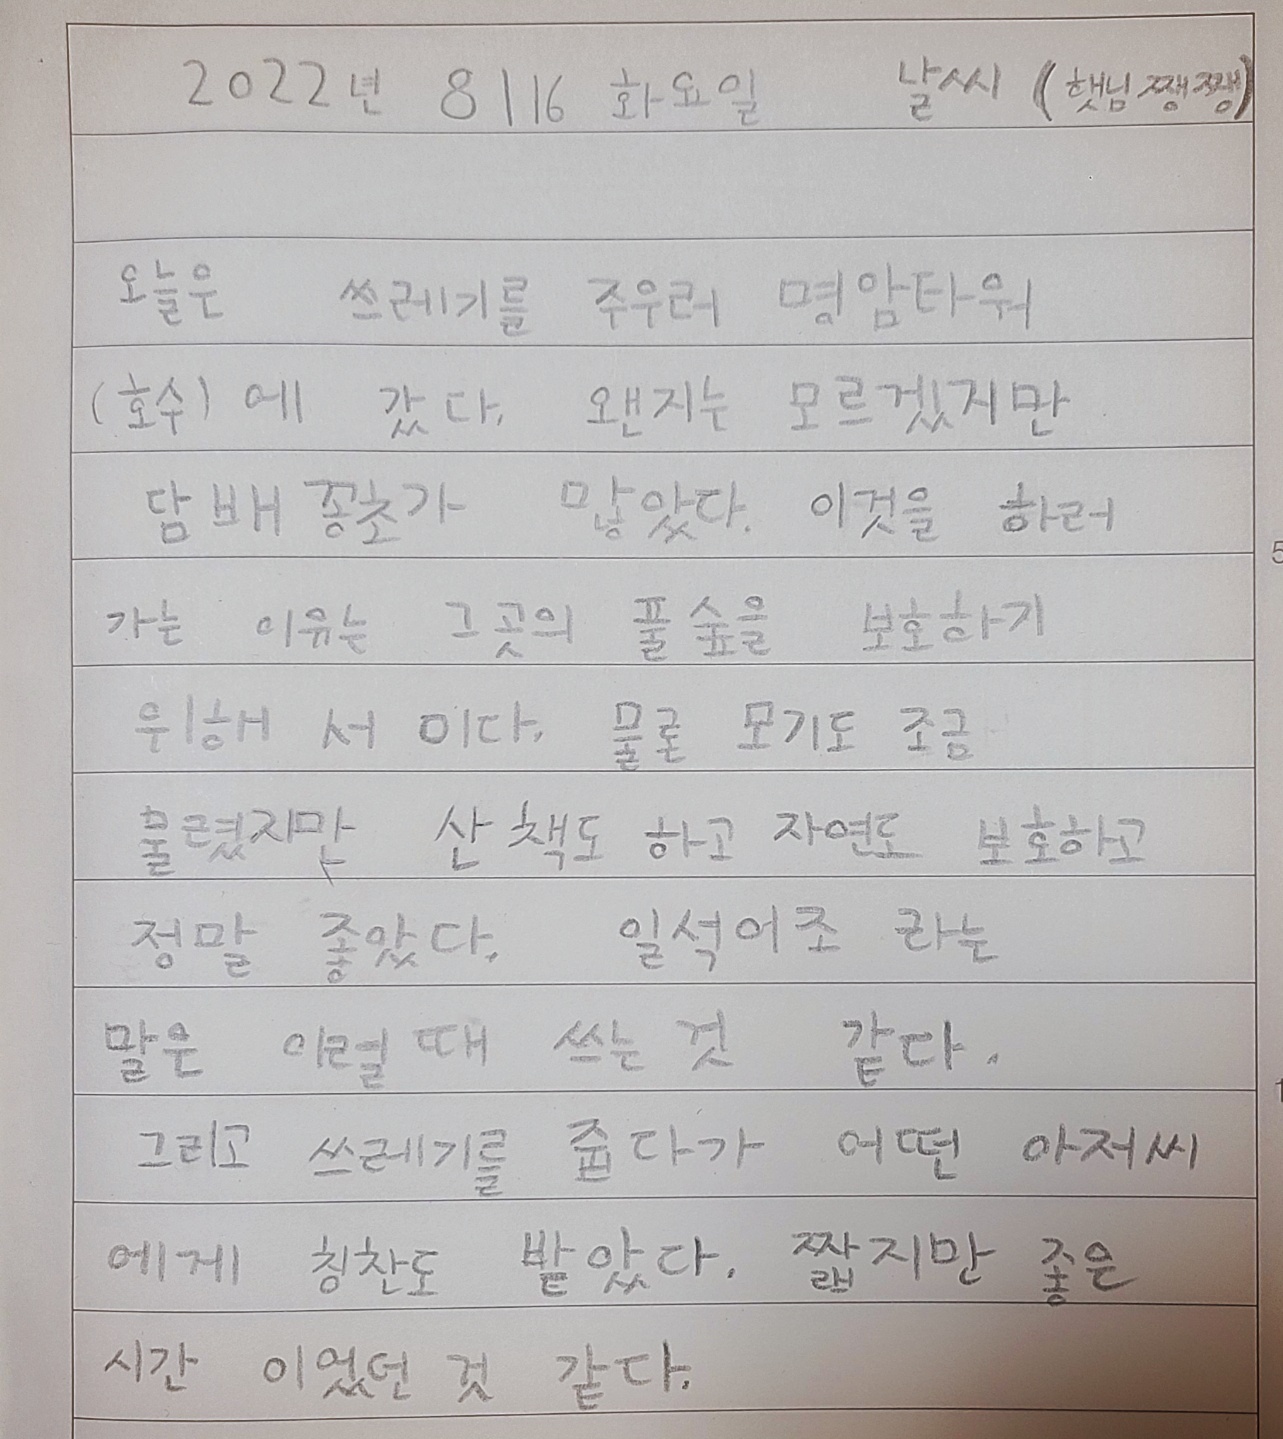 2022년 8|16 화요일 날씨 (햇님 쨍쨍)
오늘은 쓰레기를 주우러 명암타워
(호수)에 갔다. 왠지는 모르겠지만
담배 꽁초가 많았다. 이것을 하러
가는 이유는 그곳의 풀숲을 보호하기
위해 서 이다. 물론 모기도 조금
물렸지만 산책도 하고 자연도 보호하고
정말 좋았다. 일석이조 라는
말은 이럴 때 쓰는 것 같다.
그리고 쓰레기를 줍다가 어떤 아저씨
에게 칭찬도 받았다. 짧지만 좋은
시간 이었던 것 같다.
5
1